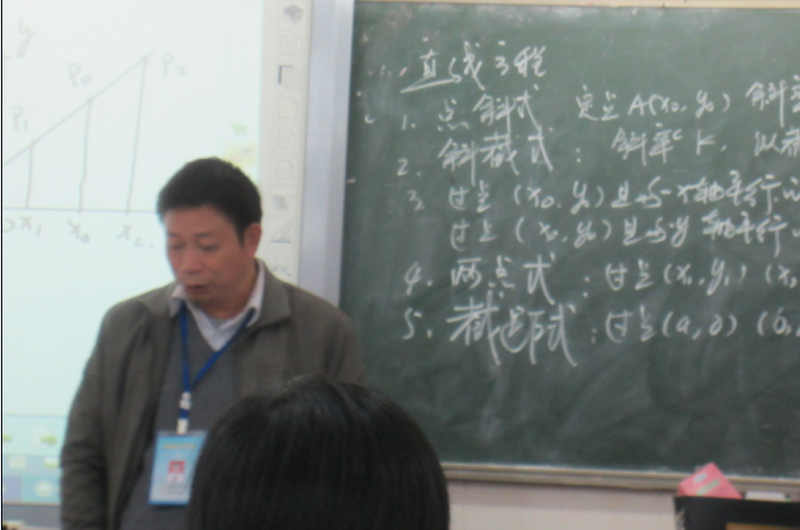 y
P₂
P₀
P₁
x₁ x₀ x₂
直线方程
1. 点斜式 定点A(x₀, y₀) 斜率
2. 斜截式: 斜率K, 以
3. 过点(x₀, y₀)且与x轴平行
过点(x₀, y₀)且与y轴平行
4. 两点式: 过点(x₁, y₁) (x₂
5. 截距式: 过点(a, 0) (0,